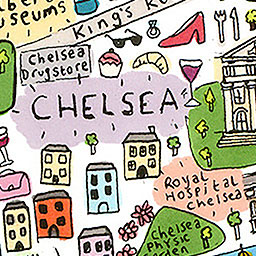 useums
Kings R
Chelsea
Drugstore
CHELSEA
Royal
Hospital
Chelsea
Chelsea
Physic
Garden